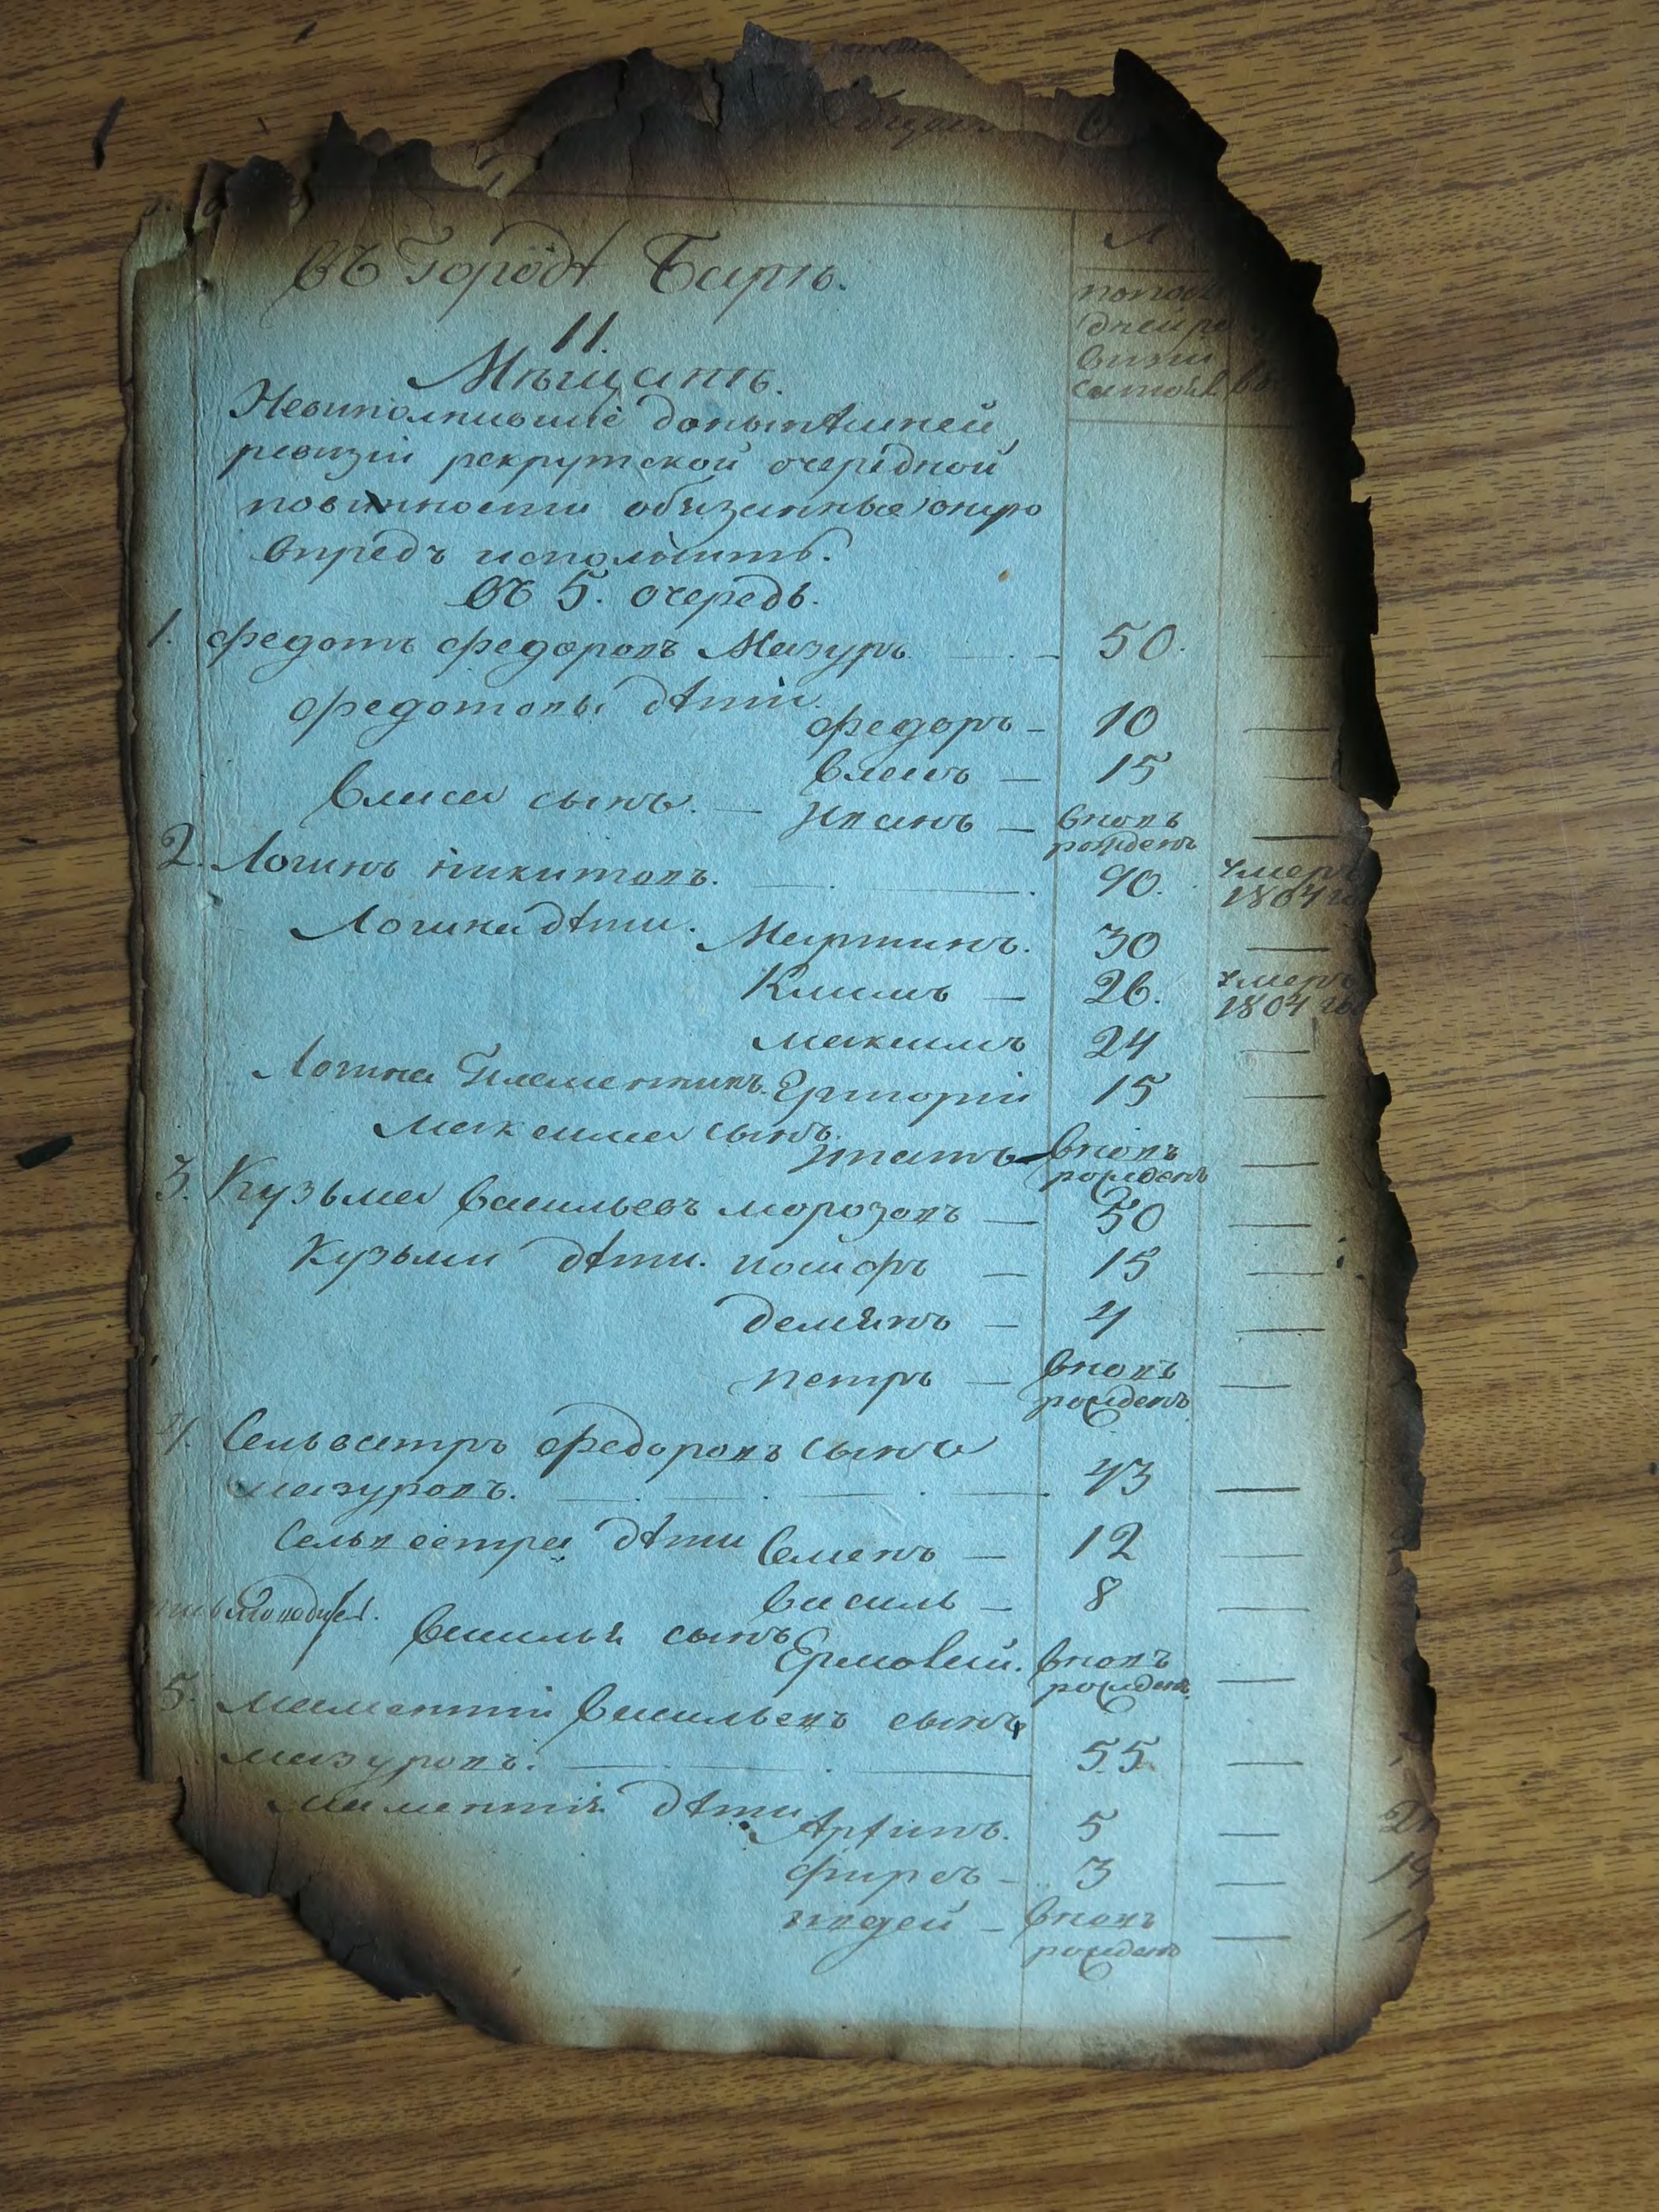 въ Городѣ Барѣ.
11.
Мѣщанѣ.
Невиполнившіе донынѣшней
ревизіи рекрутской очередной
повинности обязанные оную
впредъ исполнить.
въ 5. очередь.
дней ре
визіи
1. Федотъ Федоровъ Мазуръ 50.
Федотовы дѣти. Федоръ 10
Власъ 15
Власа сынъ. Иванъ вновъ
рожденъ
2. Логинъ никитовъ. 90. умеръ
1804 го
Логина дѣти. Мартинъ. 30
Климъ 26. умеръ
1804 го
максимъ 24
Логина Племенникъ. Григорій 15
максима сынъ Игнатъ вновъ
рожденъ
3. Кузьма васильевъ морозовъ 50
Кузьми дѣти. иосифъ 15
демянъ 4
петръ вновъ
рожденъ
4. Сельвестръ Федоровъ сынъ
мазуровъ. 43
Сельвестра дѣти Семенъ 12
василь 8
василья сынъ Ермолай. вновъ
рожденъ
5. мамонтій васильевъ сынъ
мазуровъ. 55
мамонтія дѣти 5
фирсъ 3
вновъ
рожденъ